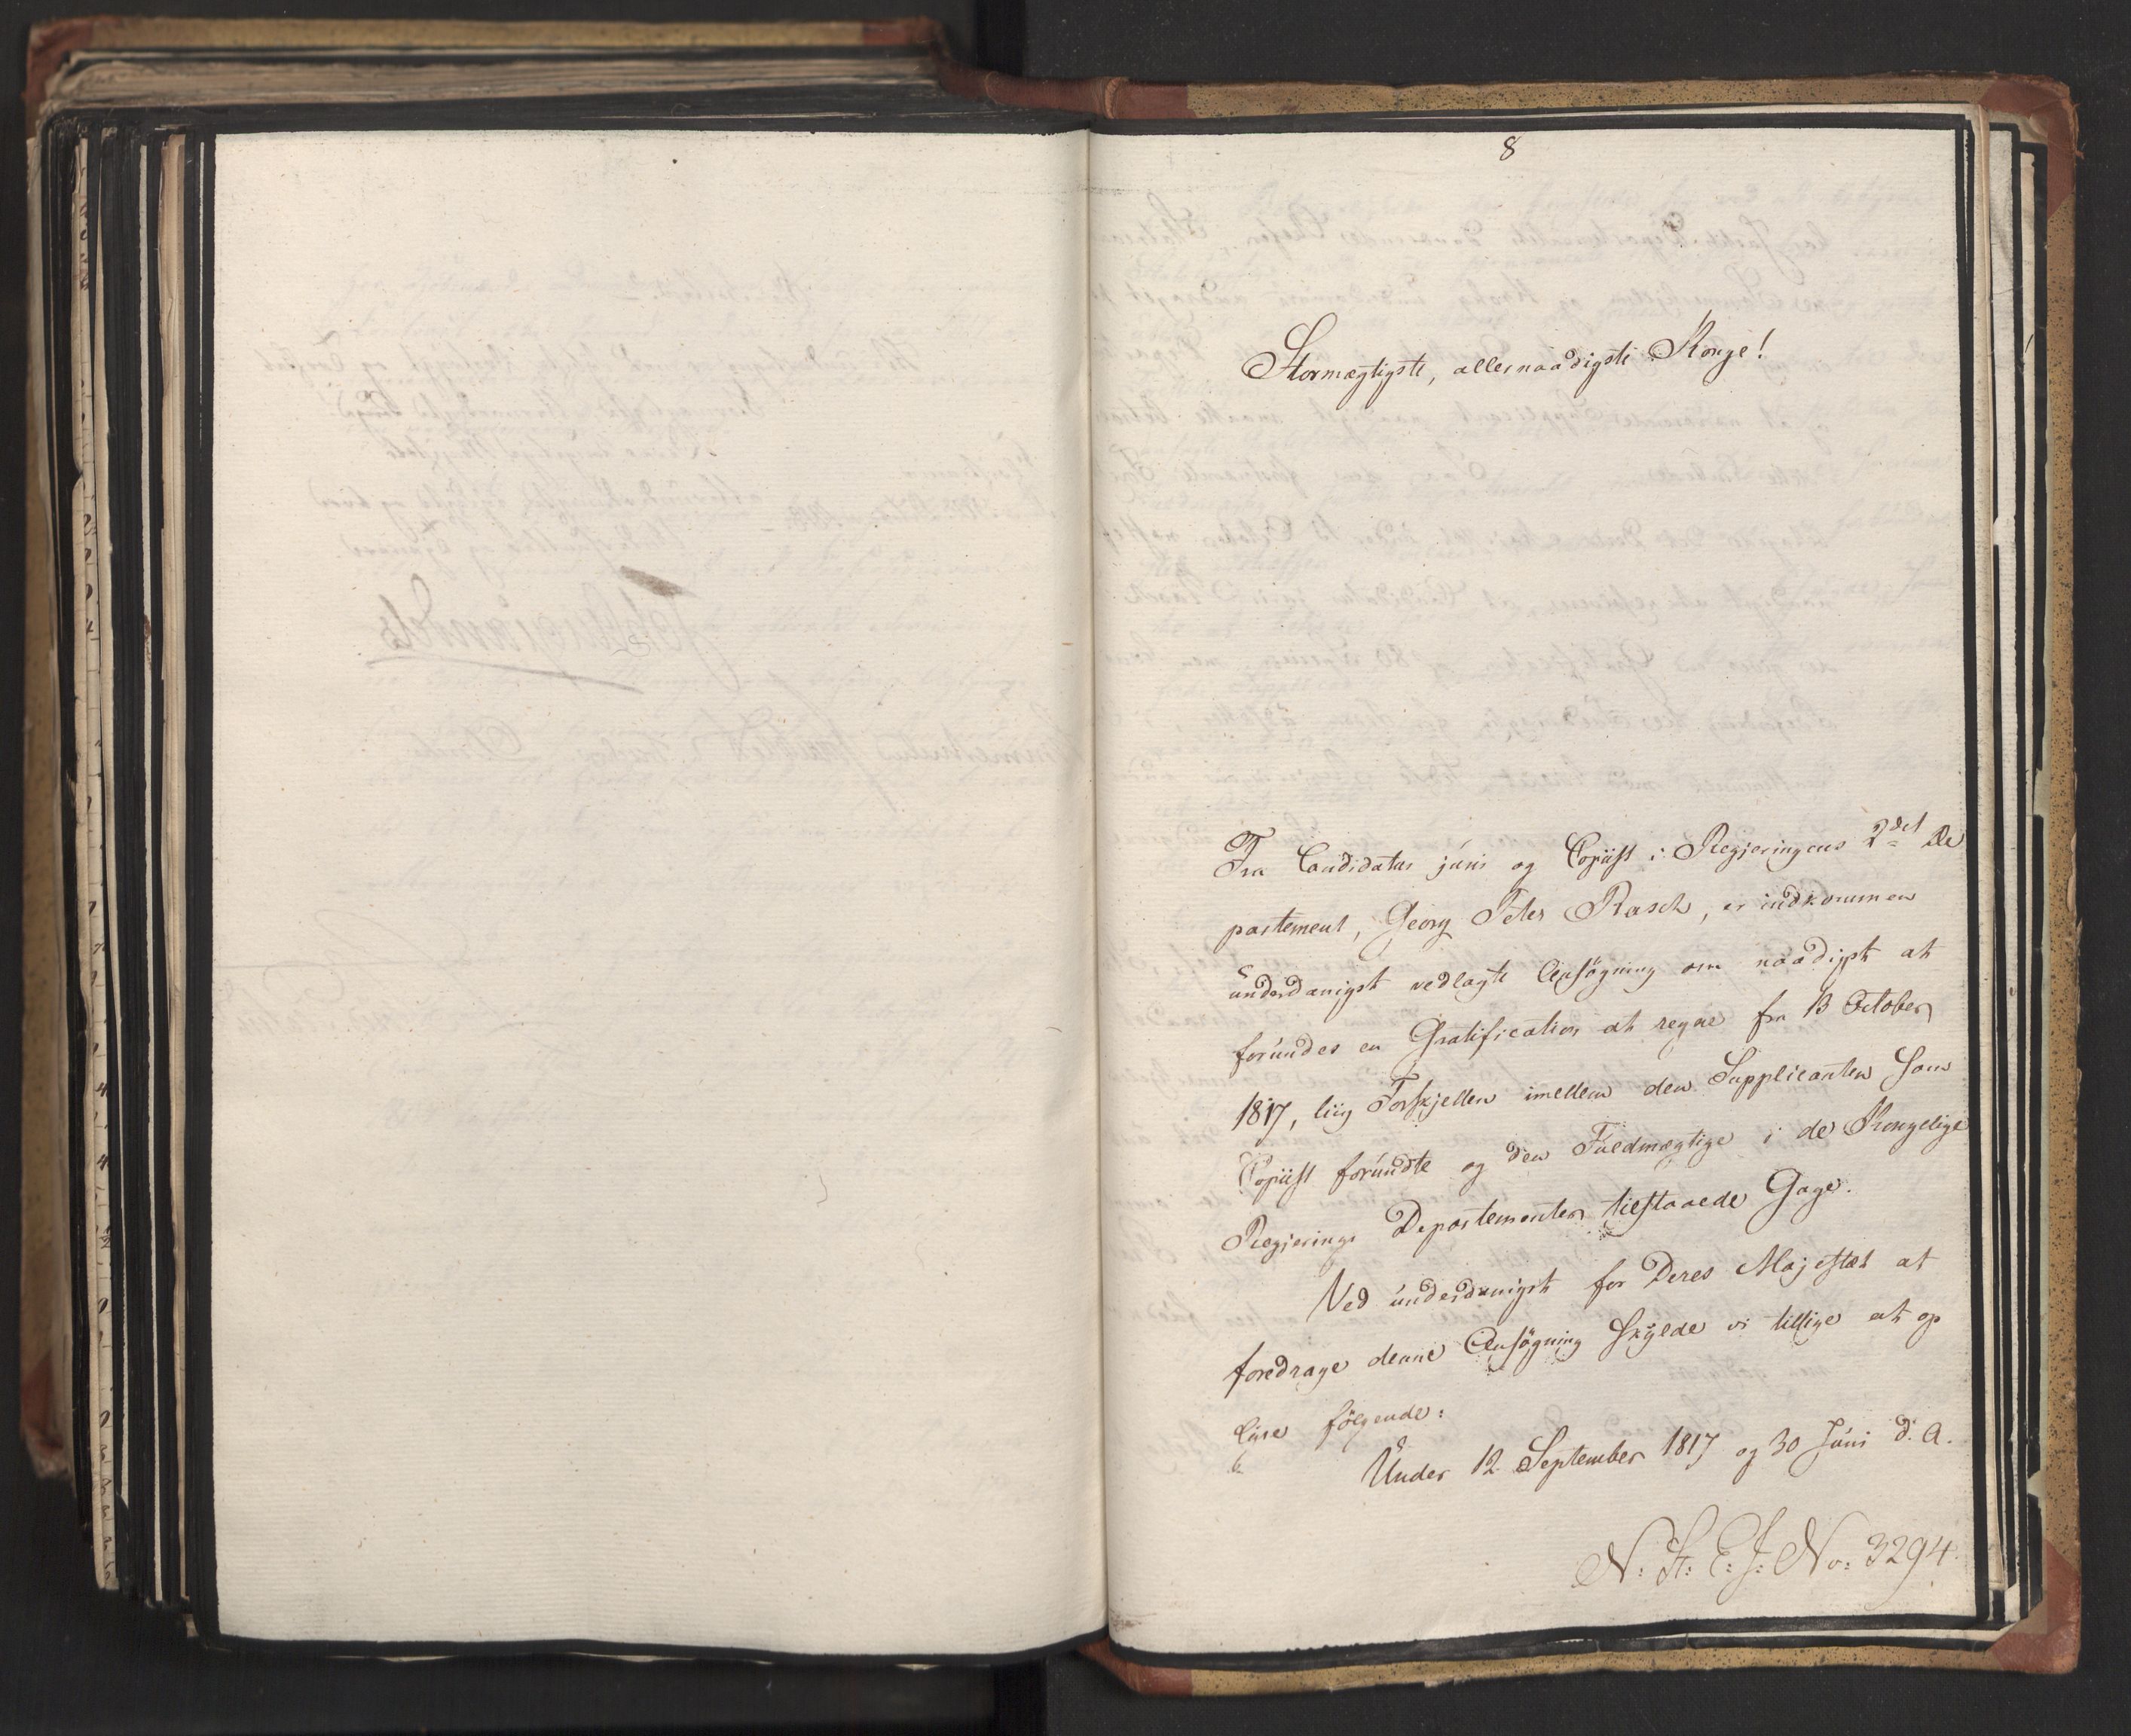 8
Stormægtigste, allernaadigste Konge!
Fra Candidatus juris og Copiist i Regjeringens 2det De
partement, Georg Peter Rasch, er indkommen
underdanigst vedlagte Ansøgning om naadigst at
forundes en Gratification at regne fra 13 October
1817, liig Forskjellen imellem den Supplicanten som
Copiist forundte og den Fuldmægtige i de Kongelige
Regjerings Departementer tilstaaede Gage.
Ved underdanigst for Deres Majestæt at
foredrage denne Ansøgning skylde vi tillige at op
lyse følgende:
Under 12 September 1817 og 30 Juni d. A.
N: St: E: J: No: 3294